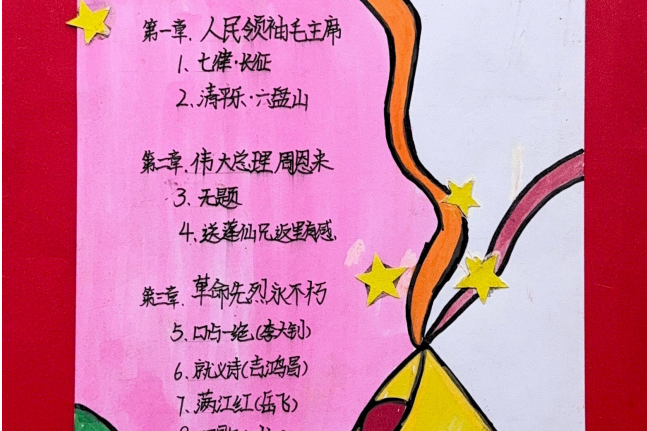 第一章. 人民领袖毛主席
1. 七律·长征
2. 清平乐·六盘山
第二章. 伟大总理周恩来
3. 无题
4. 送蓬仙兄返里有感
第三章. 革命先烈永不朽
5. 口占一绝(李大钊)
6. 就义诗(吉鸿昌)
7. 满江红(岳飞)